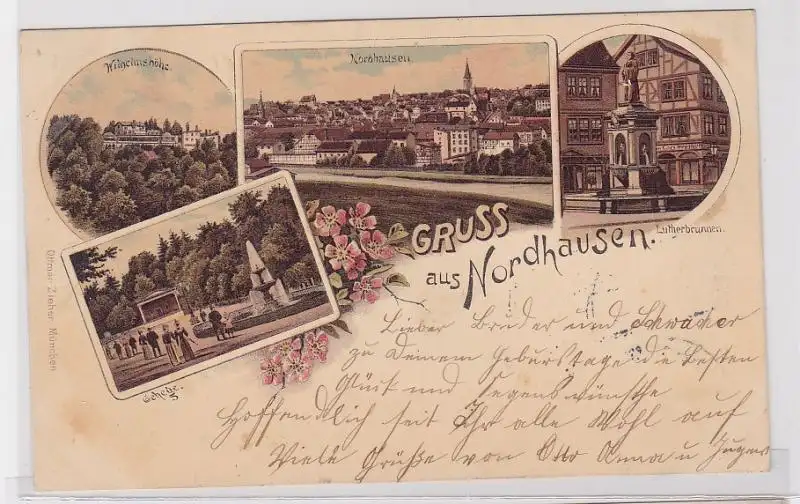 Wilhelmshöhe.
Nordhausen.
Lutherbrunnen.
Gehege.
Ottmar Zieher München
GRUSS
aus Nordhausen.
Lieber Bruder und Schwager
zu Deinem Geburstage die besten
Glück und Segenswünsche
Hoffendlich seit Ihr alle Wohl auf
Viele Grüße von Otto Anna u